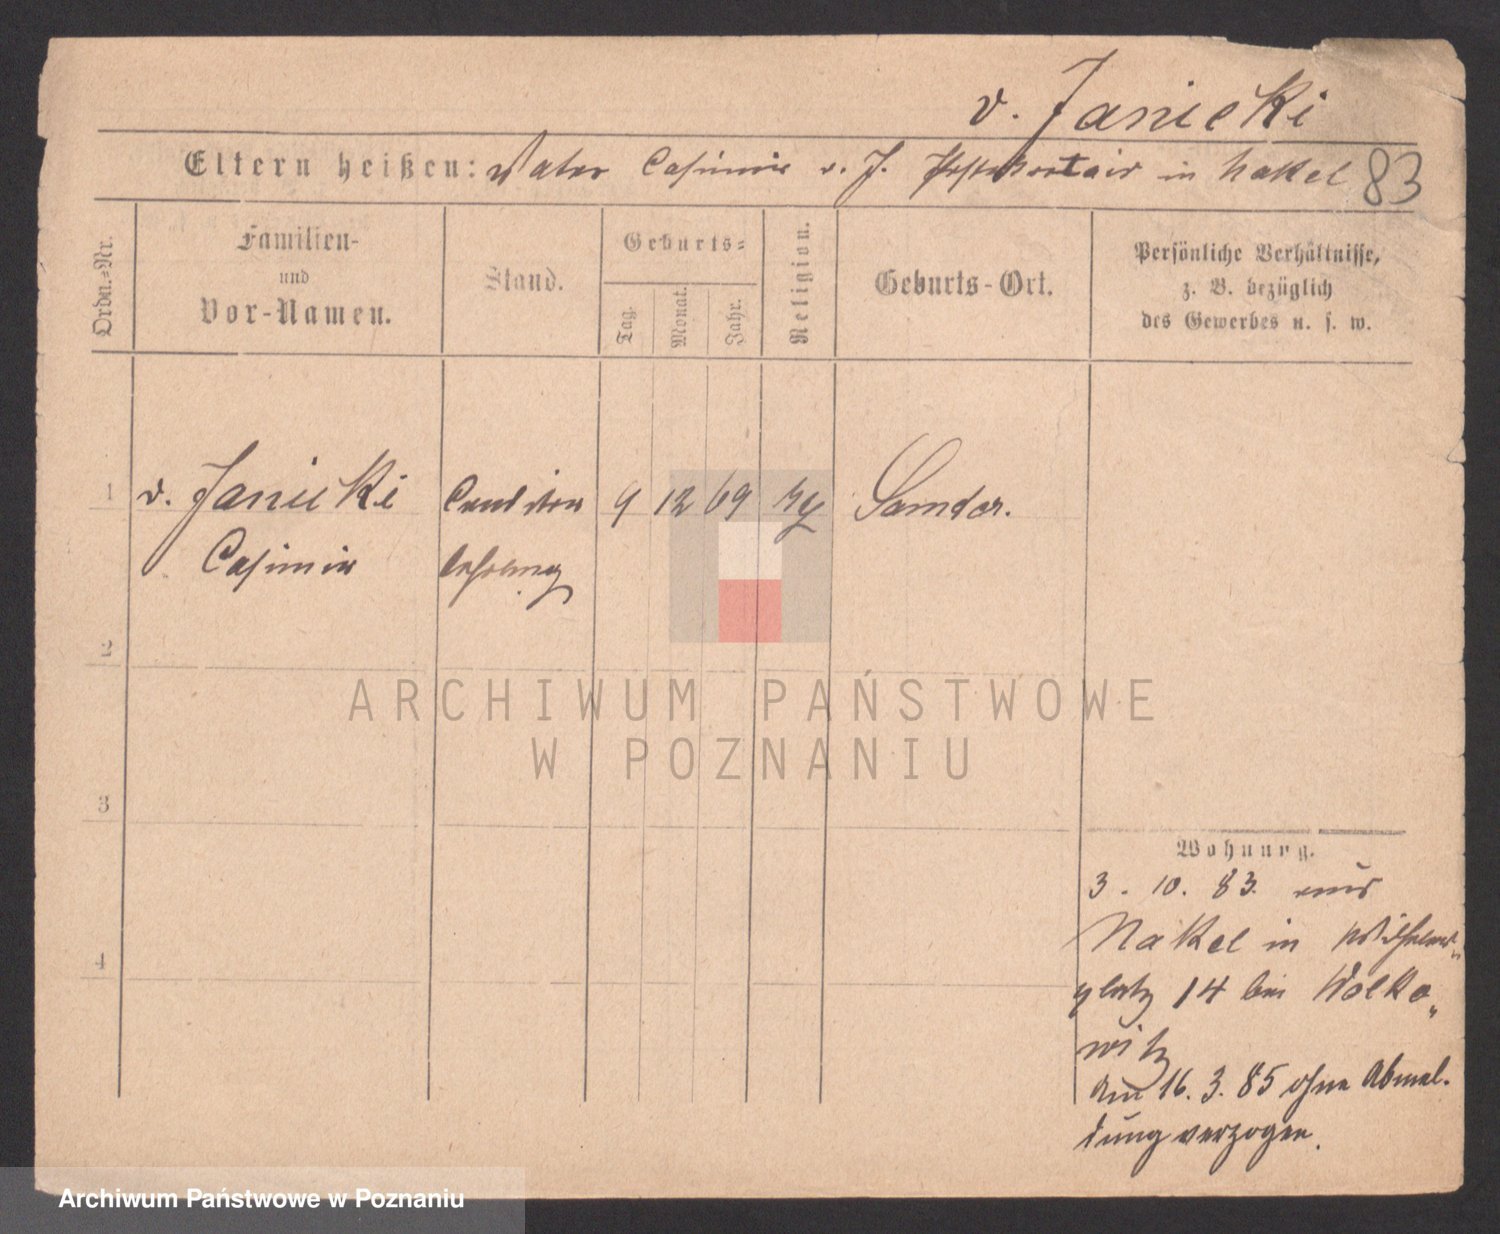 v. Janicki
Eltern heißen: Vater Casimir v. J. in Nakel 83
Ordn.=Nr.
Familien-
und
Vor-Namen.
Stand.
Geburts=
Tag.
Monat.
Jahr.
Religion.
Geburts-Ort.
Persönliche Verhältnisse,
z. B. bezüglich
des Gewerbes u. s. w.
1 v. Janicki Conditor 9 12 69 Samter.
Casimir lehrling
2
3
4
Wohnung.
3. 10. 83. aus
Nakel in Wilhelms„
platz 14 bei Wolko„
witz
Am 16. 3. 85 ohne Abmel-
dung verzogen.
ARCHIWUM PAŃSTWOWE
W POZNANIU
Archiwum Państwowe w Poznaniu